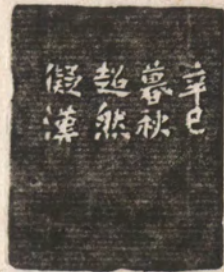 辛巳
暮秋
超然
儗漢